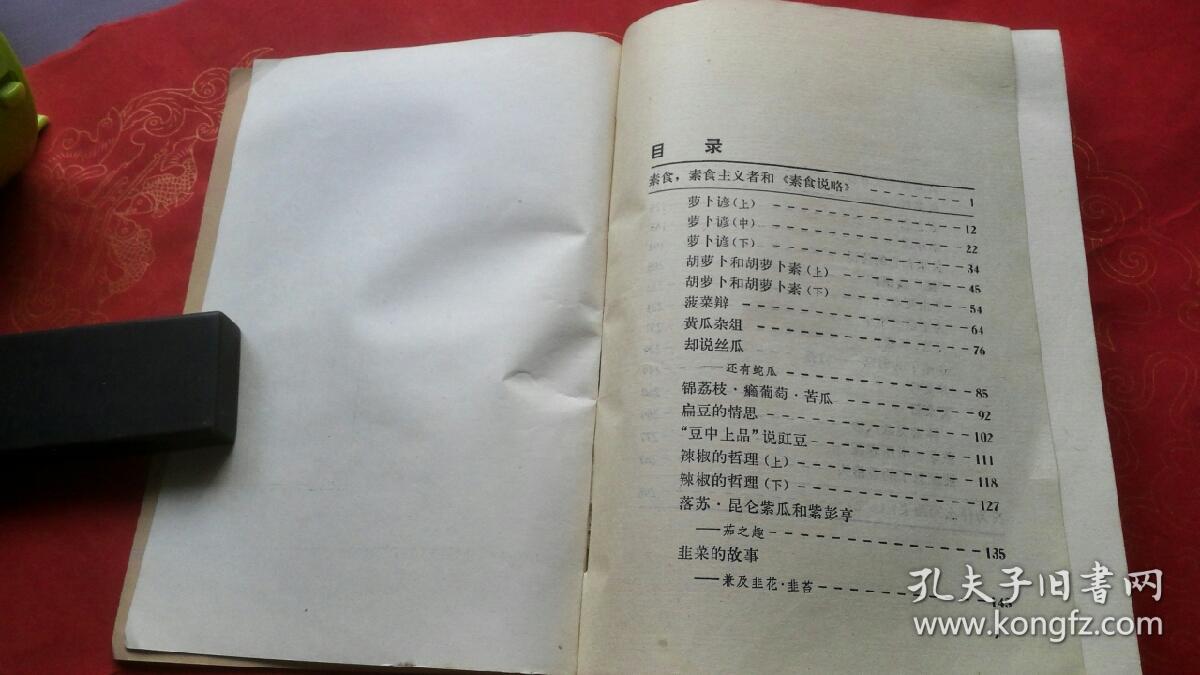 目 录
素食，素食主义者和《素食说略》 1
萝卜谚（上） 12
萝卜谚（中） 22
萝卜谚（下） 34
胡萝卜和胡萝卜素（上） 45
胡萝卜和胡萝卜素（下） 54
菠菜辩 64
黄瓜杂俎 76
却说丝瓜
——还有蛇瓜 85
锦荔枝·癞葡萄·苦瓜 92
扁豆的情思 102
“豆中上品”说豇豆 111
辣椒的哲理（上） 118
辣椒的哲理（下） 127
落苏·昆仑紫瓜和紫彭亨
——茄之趣 135
韭菜的故事
——兼及韭花·韭苔 143
孔夫子旧书网
www.kongfz.com